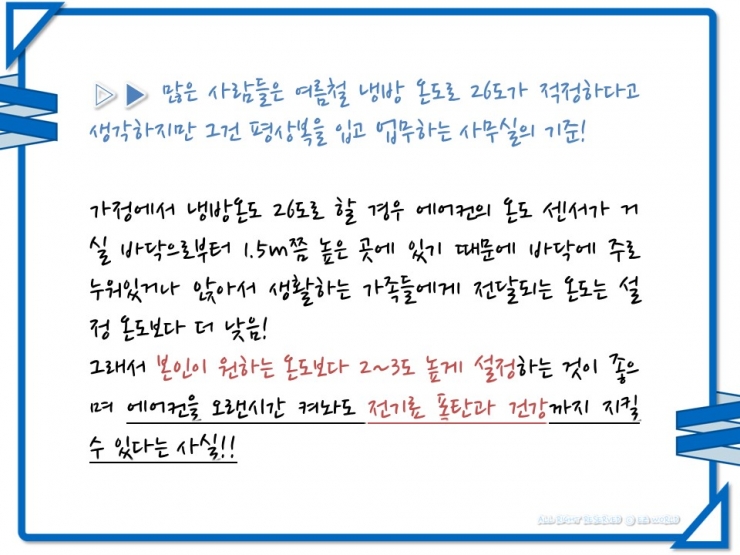 ▷▶ 많은 사람들은 여름철 냉방 온도로 26도가 적정하다고
생각하지만 그건 평상복을 입고 업무하는 사무실의 기준!
가정에서 냉방온도 26도로 할 경우 에어컨의 온도 센서가 거
실 바닥으로부터 1.5m쯤 높은 곳에 있기 때문에 바닥에 주로
누워있거나 앉아서 생활하는 가족들에게 전달되는 온도는 설
정 온도보다 더 낮음!
그래서 본인이 원하는 온도보다 2~3도 높게 설정하는 것이 좋으
며 에어컨을 오랜시간 켜놔도 전기료 폭탄과 건강까지 지킬
수 있다는 사실!!